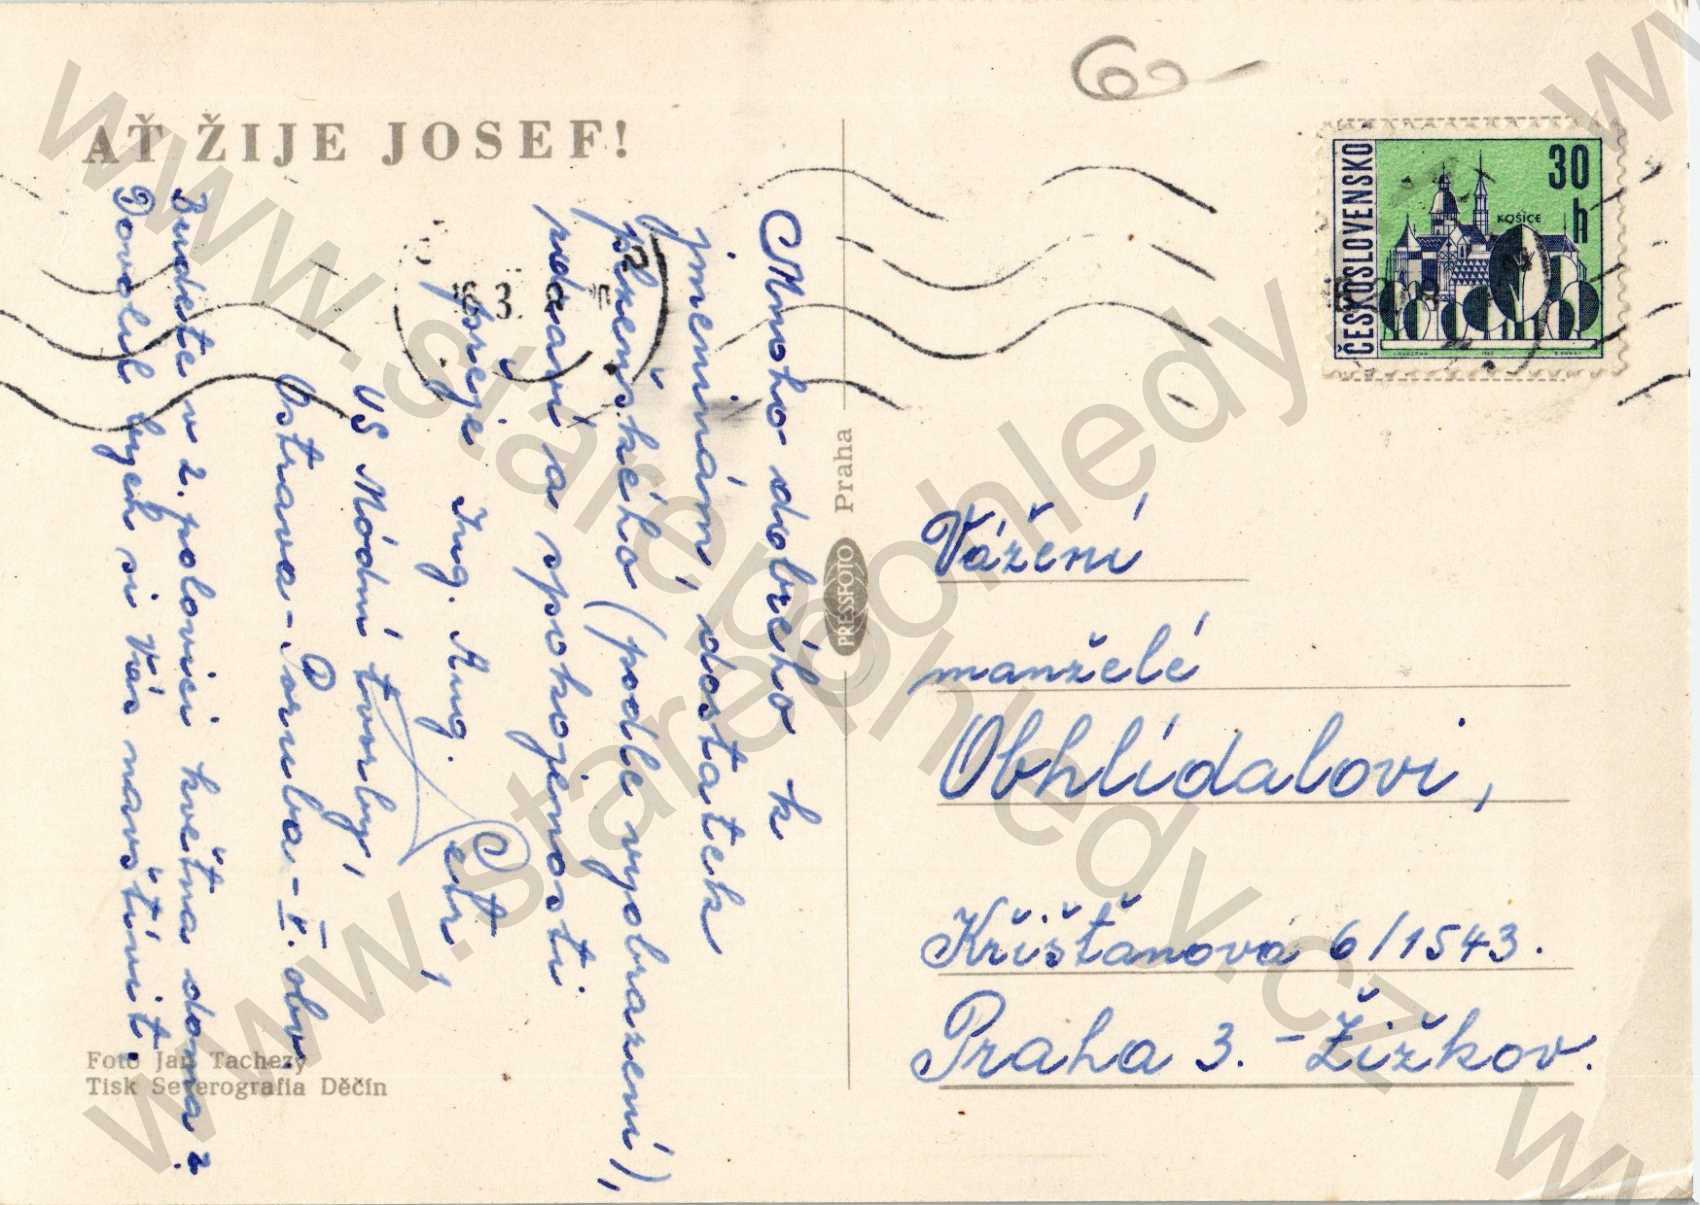 AŤ ŽIJE JOSEF!
Mnoho dobrého k
jmeninám, dostatek
plzeňského (podle vyobrazení),
zdraví a spokojenosti
přeje Ing. Aug. Petr,
VS Módní tvorby,
Ostrava-Poruba-V. obv
Budete v 2. polovici května doma?
Dovolil bych si Vás navštívit.
Foto Jan Tachezy
Tisk Severografia Děčín
PRESSFOTO Praha
60-
ČESKOSLOVENSKO
30 h
KOŠICE
3.
Vážení
manželé
Obhlídalovi,
Křišťanová 6/1543.
Praha 3. - Žižkov.
www.starepohledy.cz
www.starepohledy